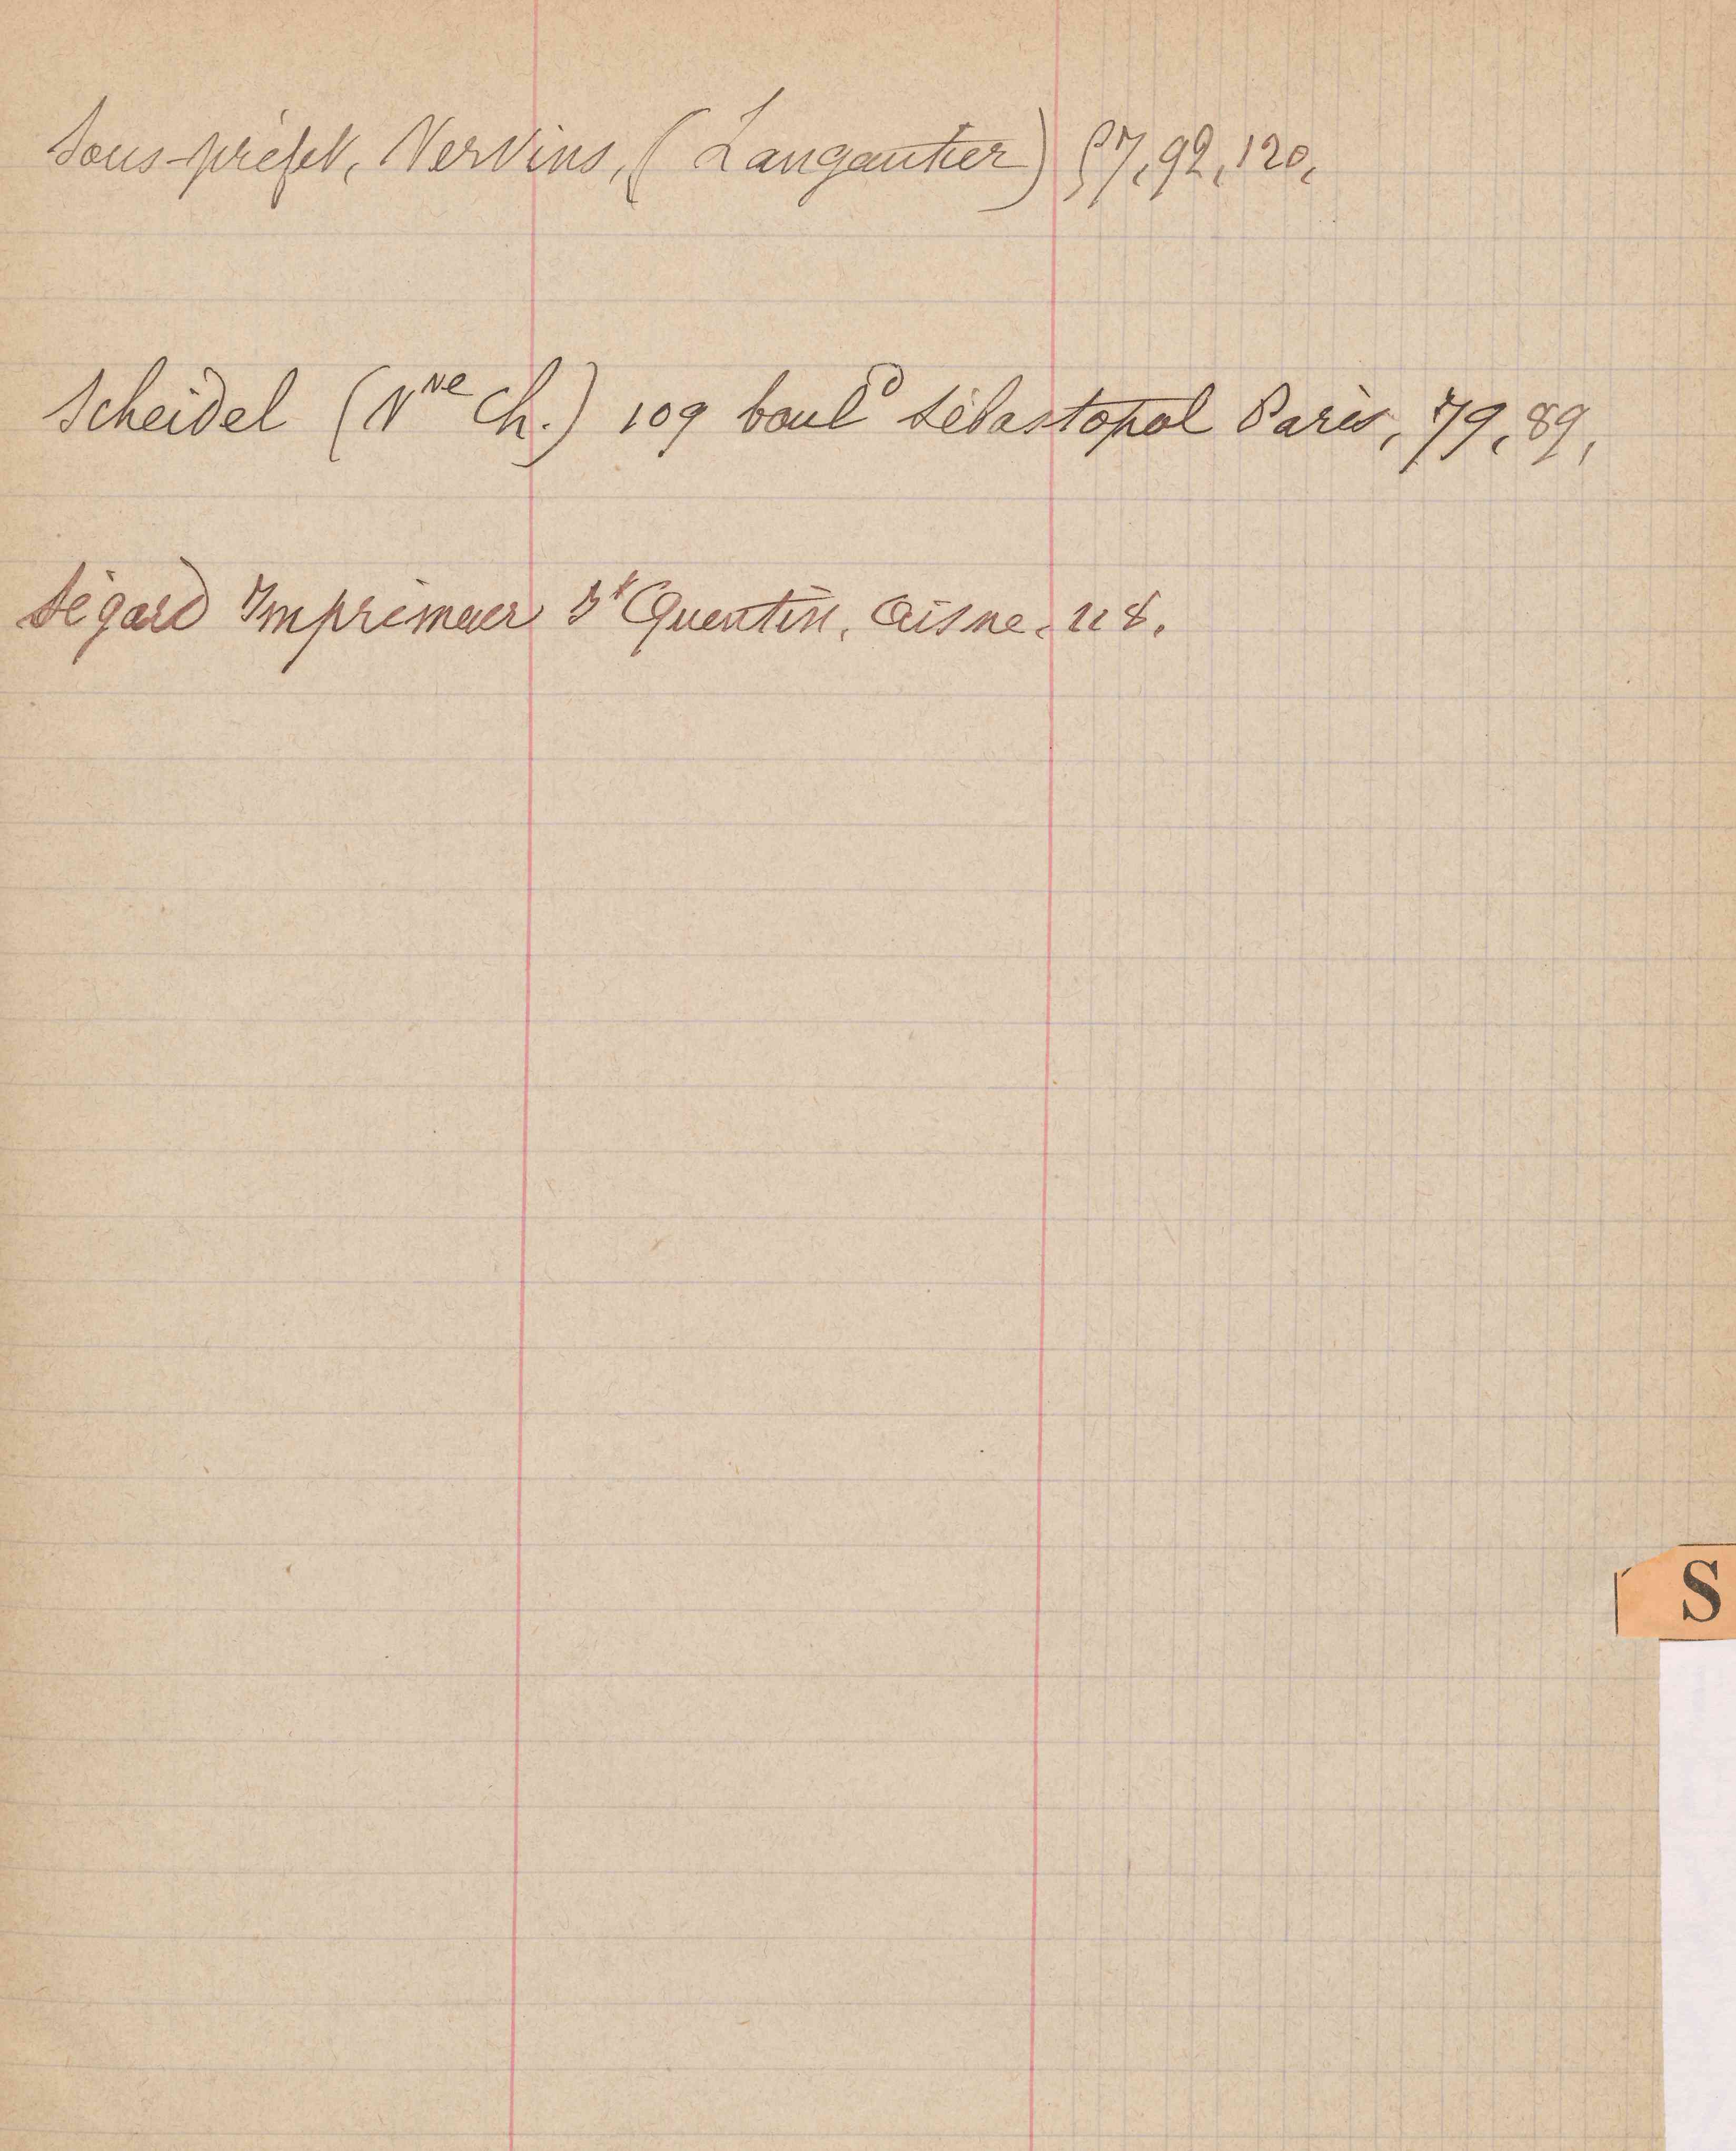 Sous-préfet, Vervins, (Langautier) 87, 92, 120,
Scheidel (Vve Ch.) 109 bould Sébastopol Paris, 79, 89,
Ségard Imprimeur St Quentin, Aisne. 118.
S